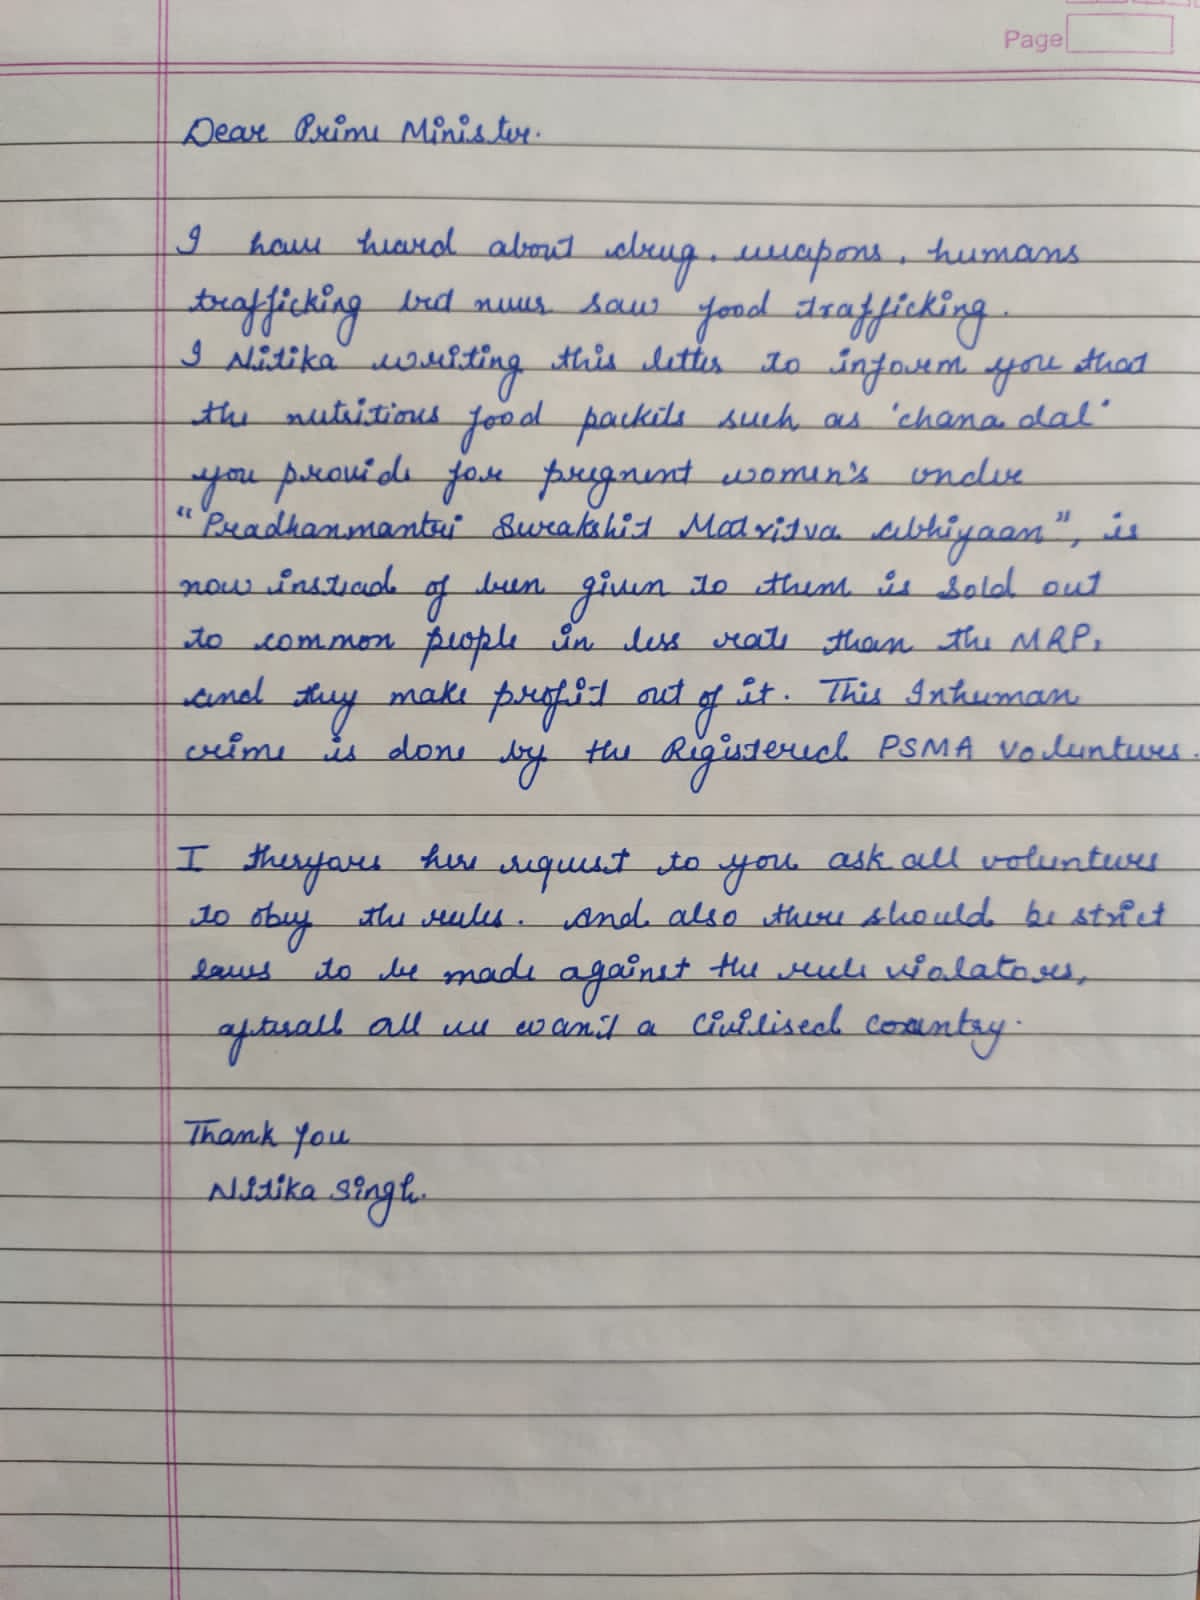 Page
Dear Prime Minister.
I have heard about drug, weapons, humans
trafficking but never saw food trafficking.
I Nitika writing this letter to inform you that
the nutritious food packets such as 'chana dal'
you provide for pregnent women's under
"Pradhanmantri Surakshit Matritva Abhiyaan", is
now instead of been given to them is sold out
to common people in less rate than the MRP,
and they make profit out of it. This Inhuman
crime is done by the Registered PSMA volunteers.
I therfore here request to you ask all volunteers
to obey the rules. And also there should be strict
laws to be made against the rule violators,
afterall all we want a Civilised country.
Thank You
Nitika Singh.